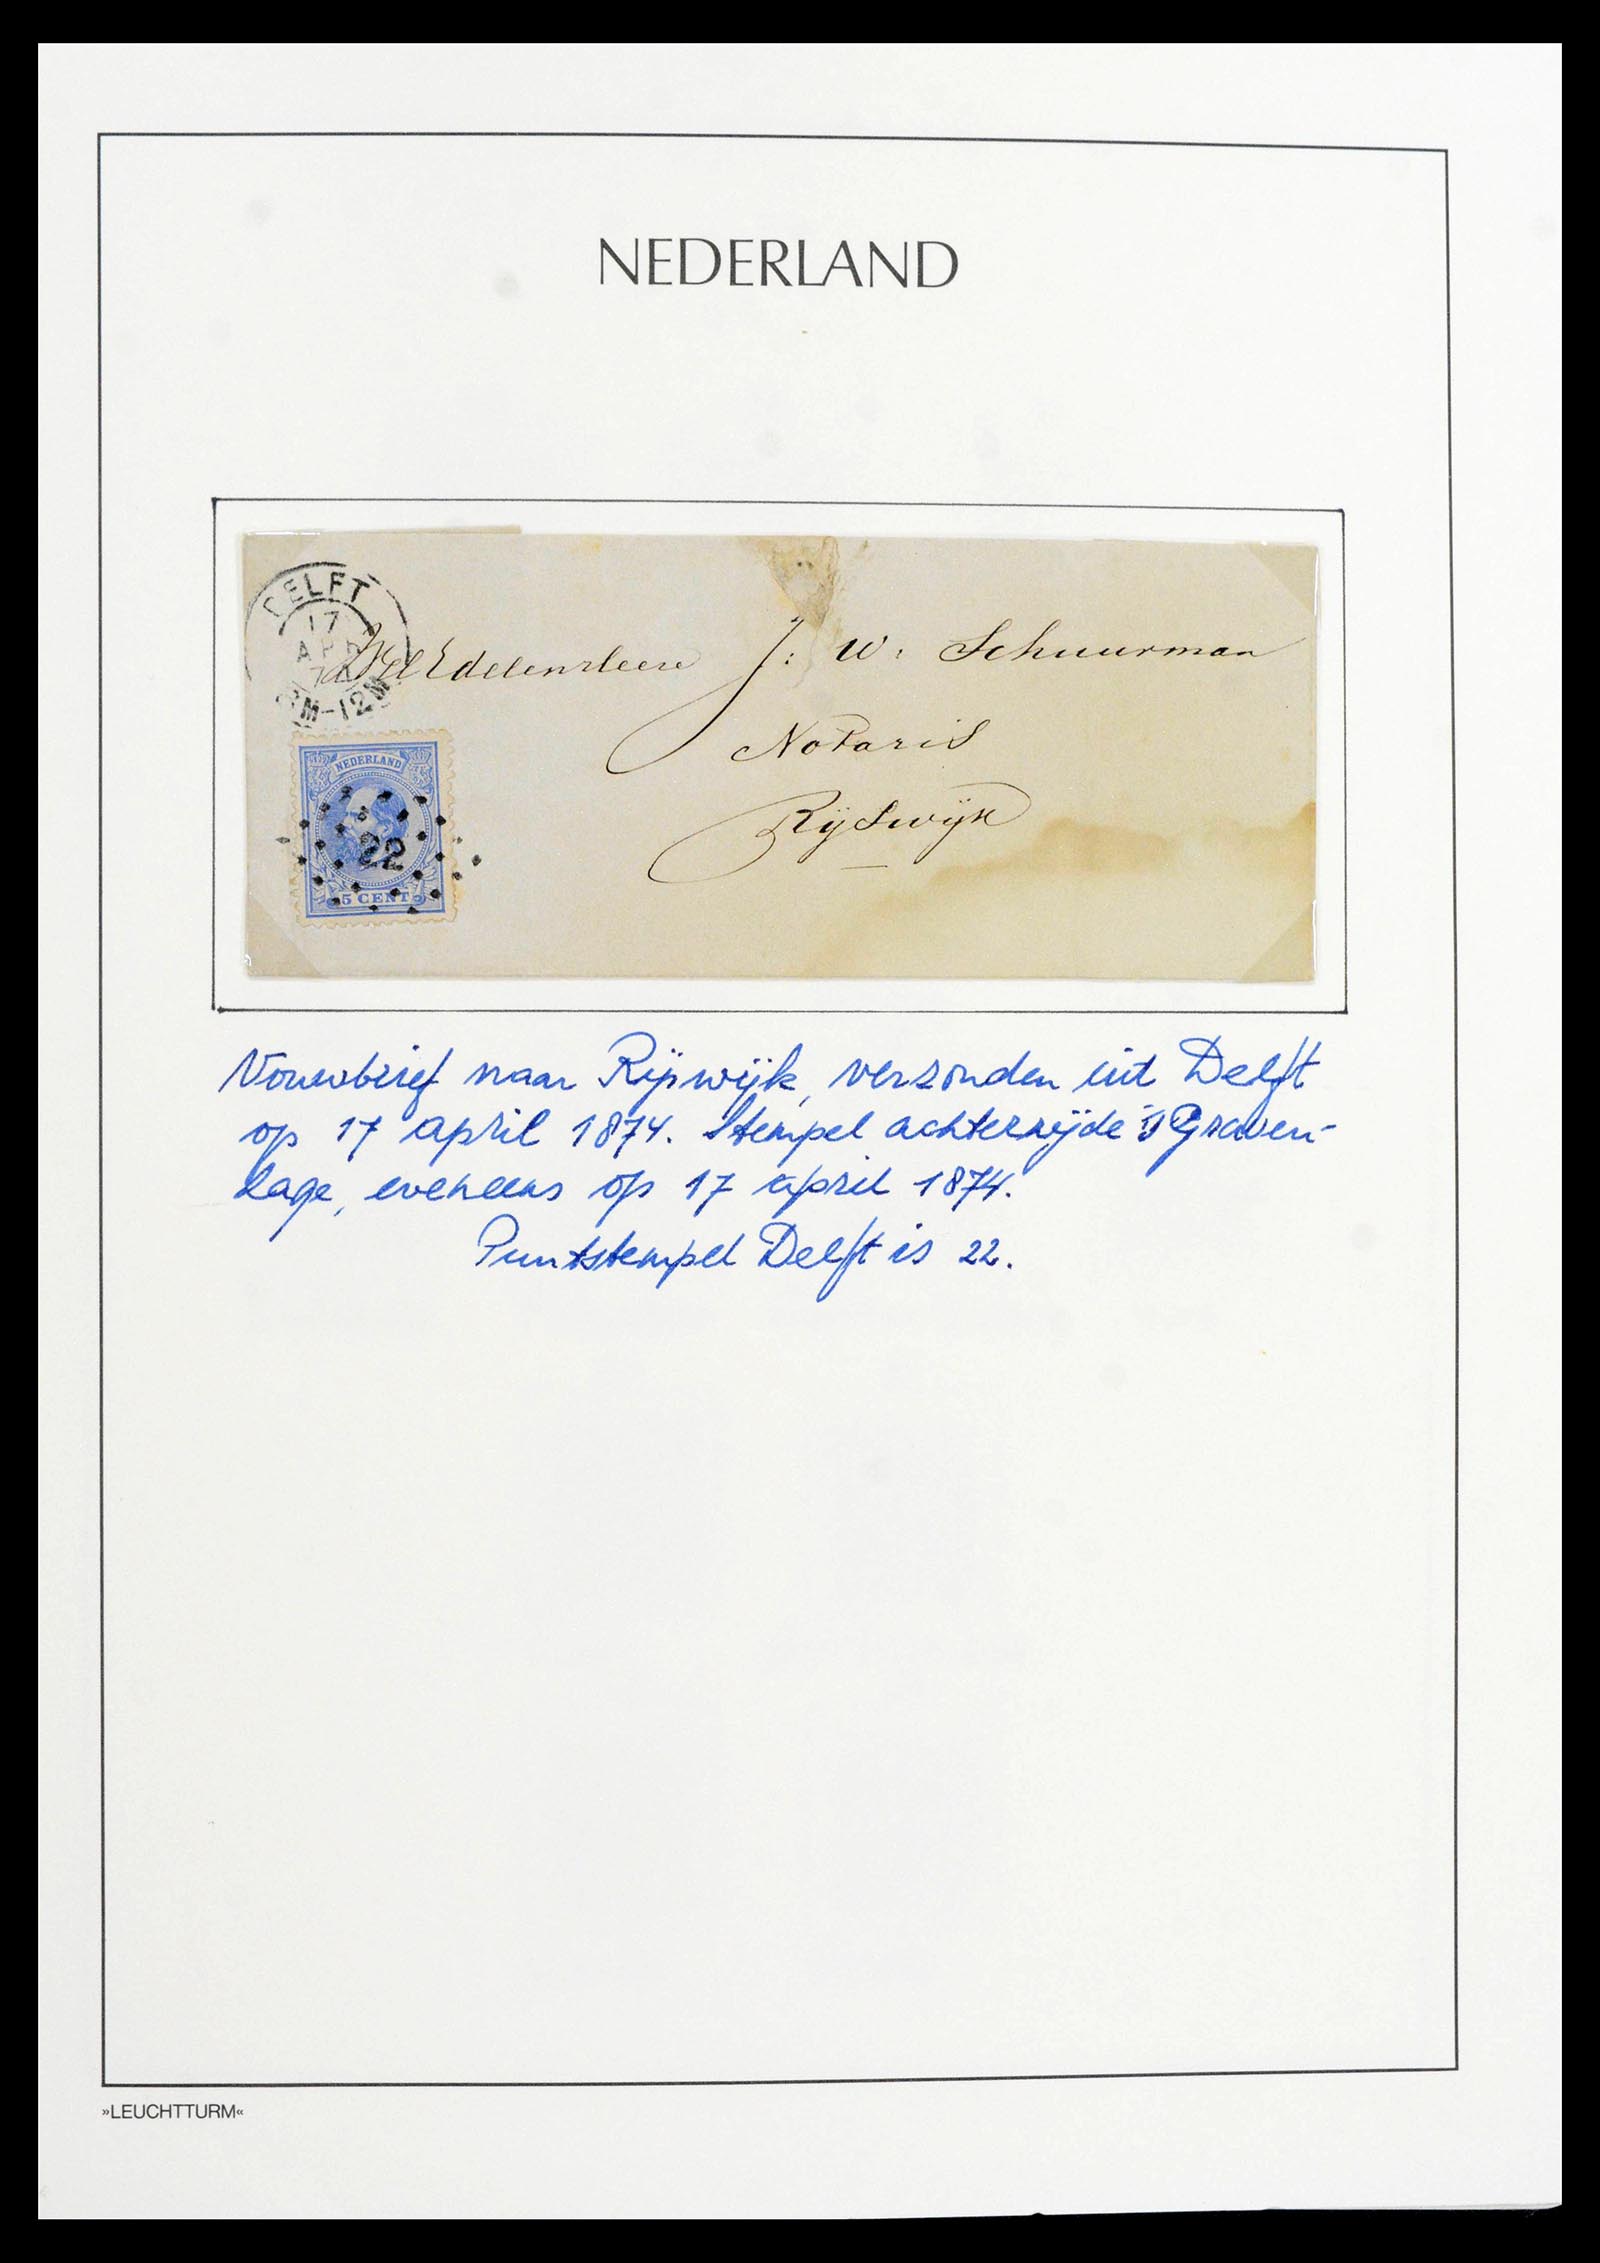 NEDERLAND
DELFT
17
APR
74
M-12M
WelEdelenHeere J: W: Schuurman
Notaris
Rijswijk
NEDERLAND
22
5 CENT
Vouwbrief naar Rijswijk, verzonden uit Delft
op 17 april 1874. Stempel achterzijde 's Graven-
hage, eveneens op 17 april 1874.
Puntstempel Delft is 22.
»LEUCHTTURM«